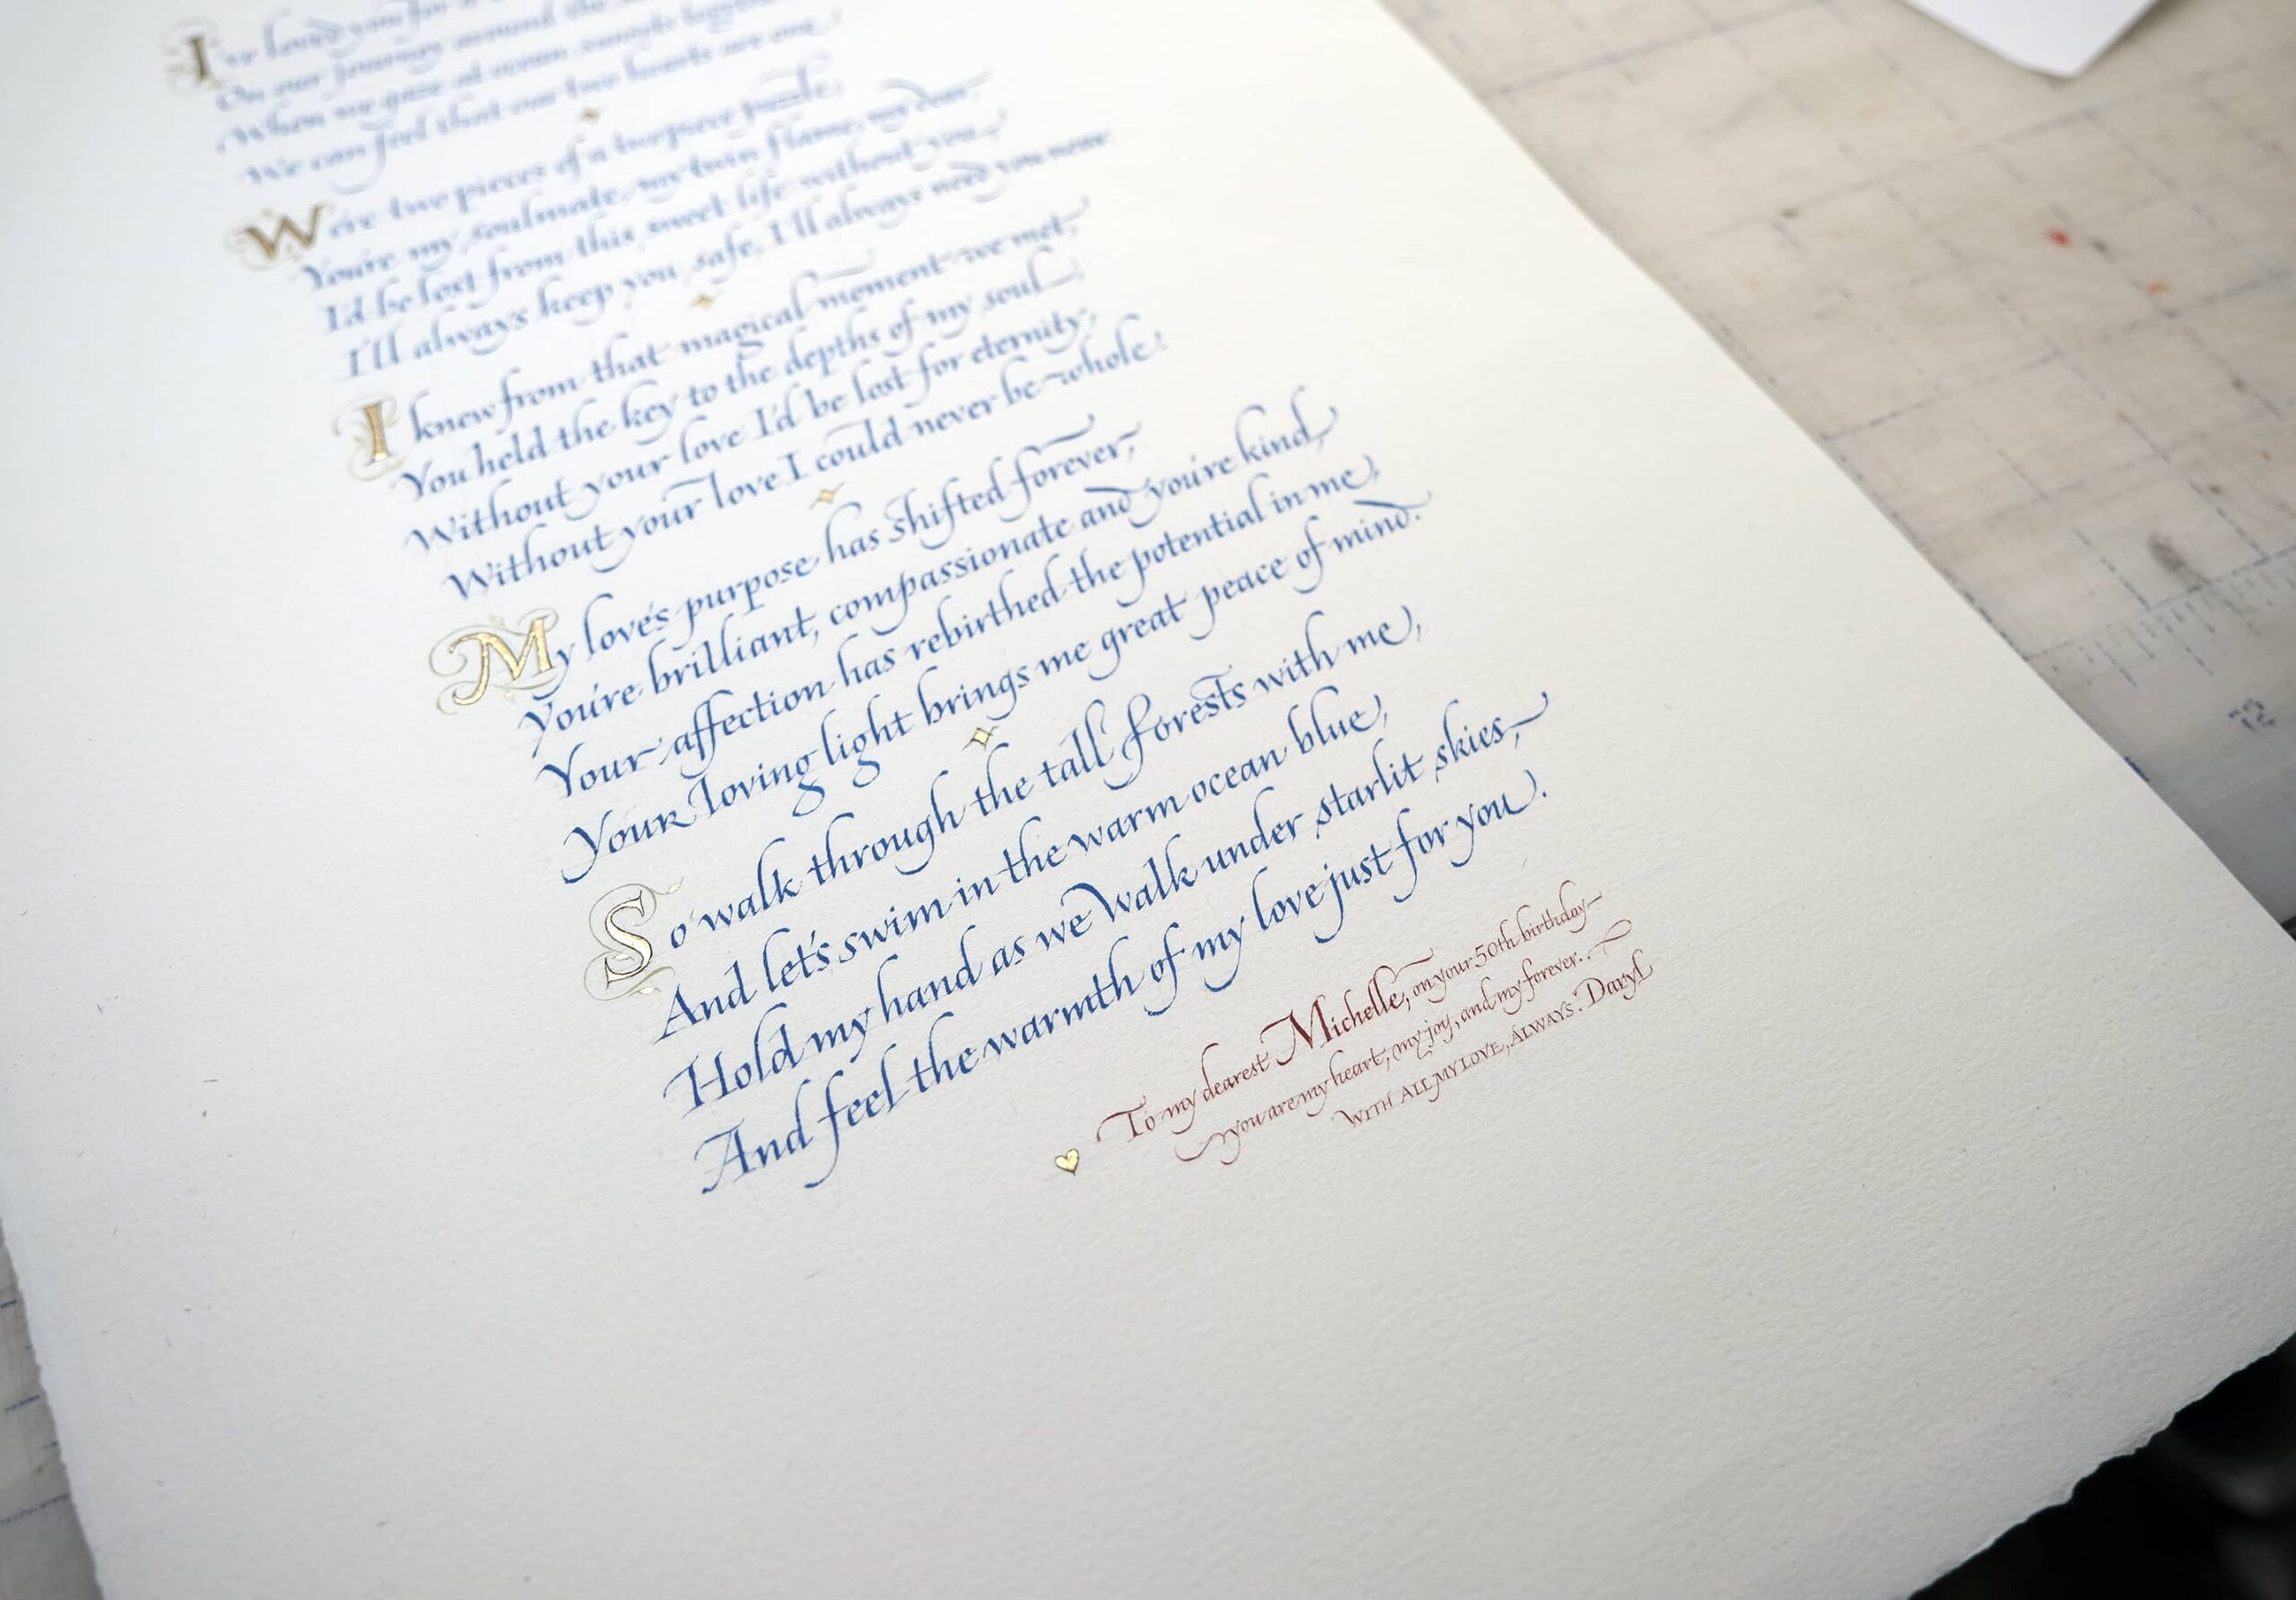 I've loved you for a
On our journey around the
When we gaze at ocean sunsets together
We can feel that our two hearts are one.
We're two pieces of a two piece puzzle,
You're my soulmate, my twin flame, my dear,
I'd be lost from this sweet life without you,
I'll always keep you safe, I'll always need you near.
I knew from that magical moment we met,
You held the key to the depths of my soul,
Without your love I'd be lost for eternity,
Without your love I could never be whole.
My love's purpose has shifted forever,
You're brilliant, compassionate and you're kind,
Your affection has rebirthed the potential in me,
Your loving light brings me great peace of mind.
So walk through the tall forests with me,
And let's swim in the warm ocean blue,
Hold my hand as we walk under starlit skies,
And feel the warmth of my love just for you.
To my dearest Michelle, on your 50th birthday—
you are my heart, my joy, and my forever.
WITH ALL MY LOVE, ALWAYS. Daryl